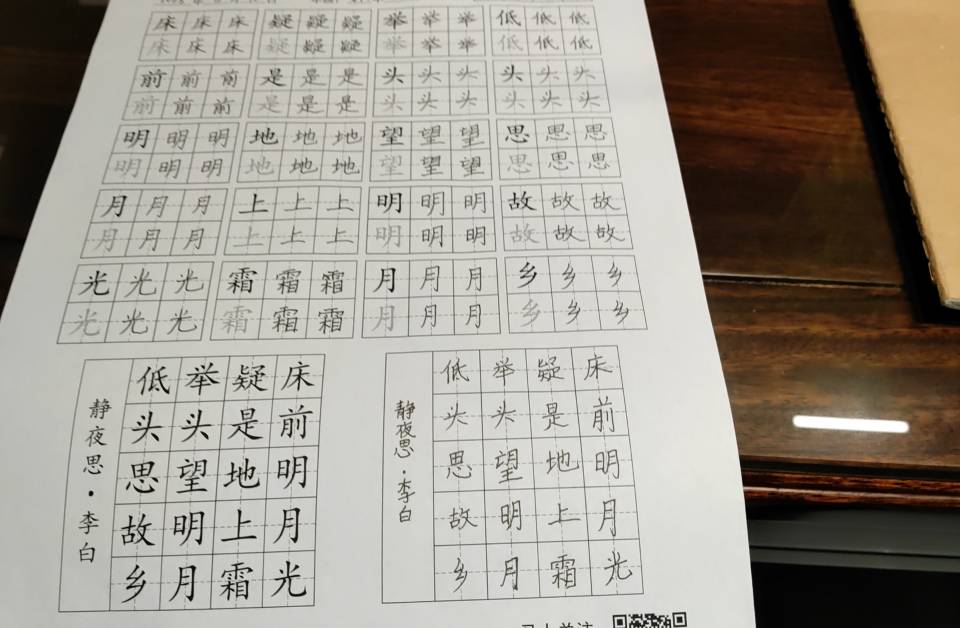 床床床 疑疑疑 举举举 低低低
床床床 疑疑疑 举举举 低低低
前前前 是是是 头头头 头头头
前前前 是是是 头头头 头头头
明明明 地地地 望望望 思思思
明明明 地地地 望望望 思思思
月月月 上上上 明明明 故故故
月月月 上上上 明明明 故故故
光光光 霜霜霜 月月月 乡乡乡
光光光 霜霜霜 月月月 乡乡乡
床前明月光
疑是地上霜
举头望明月
低头思故乡
静夜思·李白
床前明月光
疑是地上霜
举头望明月
低头思故乡
静夜思·李白